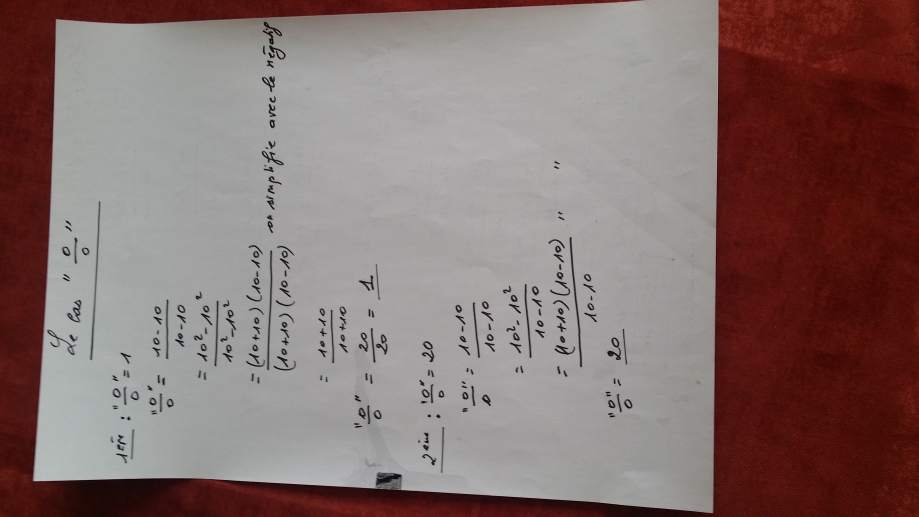 Le cas "0/0"
1ère : "0/0" = 1
"0/0" = 10-10/10-10
= 10²-10²/10²-10²
= (10+10)(10-10)/(10+10)(10-10) on simplifie avec le négatif
= 10+10/10+10
"0/0" = 20/20 = 1
2ème : "0/0" = 20
"0/0" = 10-10/10-10
= 10²-10²/10-10
= (10+10)(10-10)/10-10 " "
"0/0" = 20